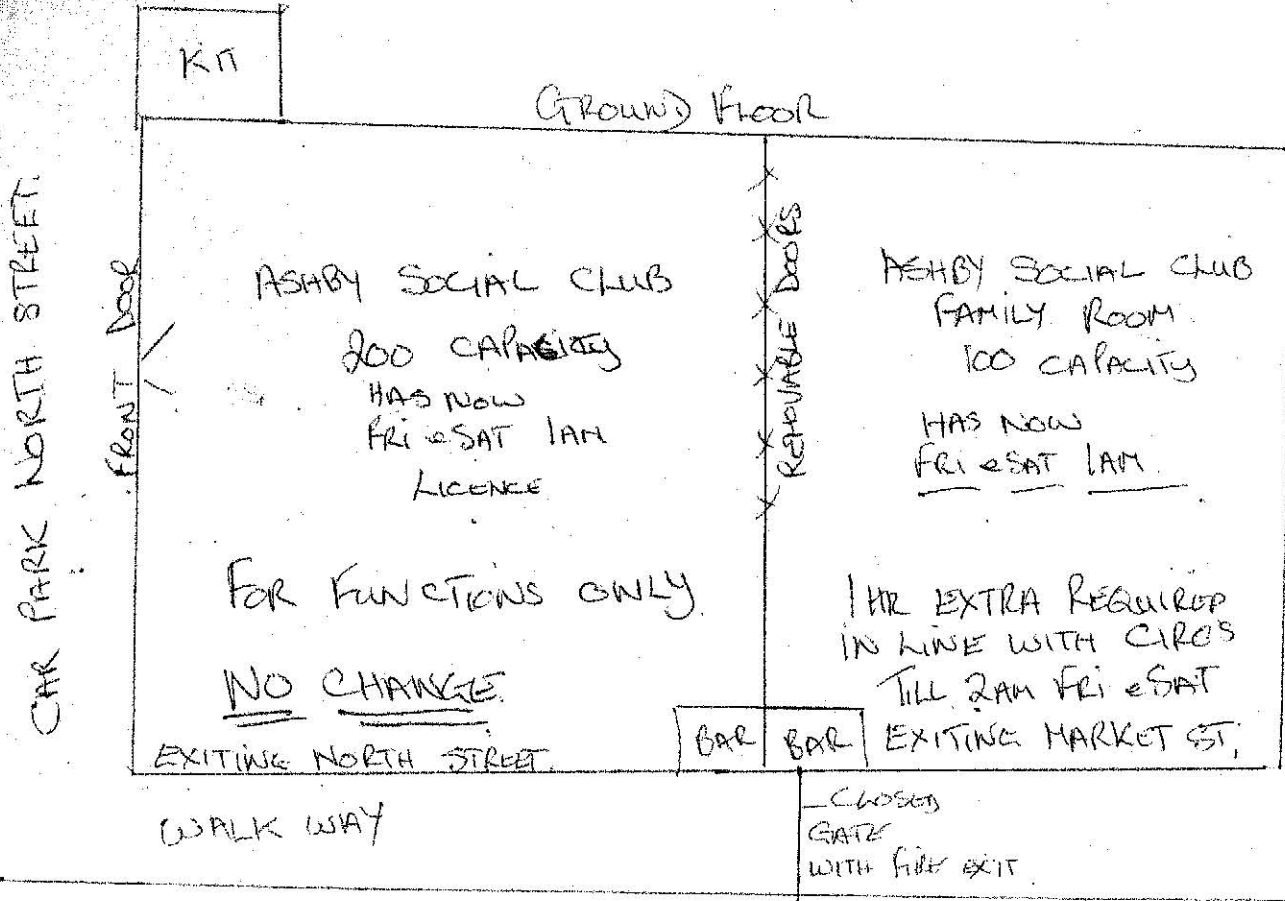 KIT
GROUND FLOOR
CAR PARK NORTH STREET.
FRONT DOOR
ASHBY SOCIAL CLUB
200 CAPACITY
HAS NOW
FRI & SAT 1AM
LICENCE
FOR FUNCTIONS ONLY.
NO CHANGE.
EXITING NORTH STREET.
REMOVABLE DOORS
ASHBY SOCIAL CLUB
FAMILY ROOM
100 CAPACITY
HAS NOW
FRI & SAT 1AM.
1 HR EXTRA REQUIRED
IN LINE WITH CIRO'S
TILL 2AM FRI & SAT
EXITING MARKET ST,
BAR
BAR
WALK WAY
CLOSED
GATE
WITH FIRE EXIT